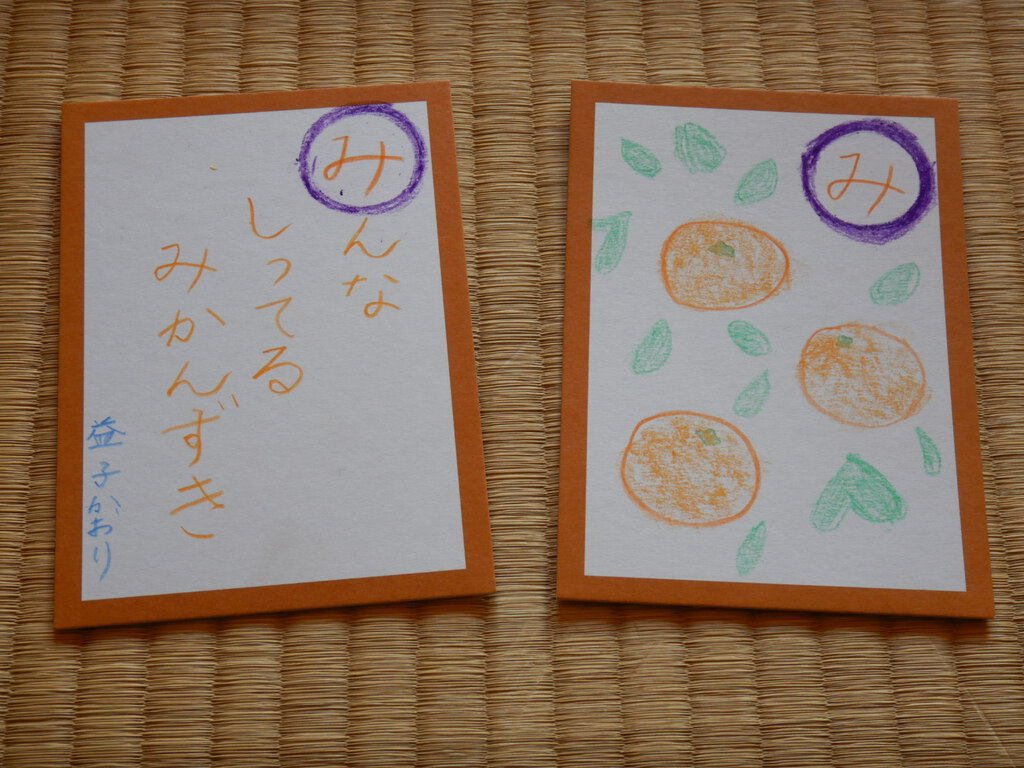 みんな
しってる
みかんずき
益子かおり
み